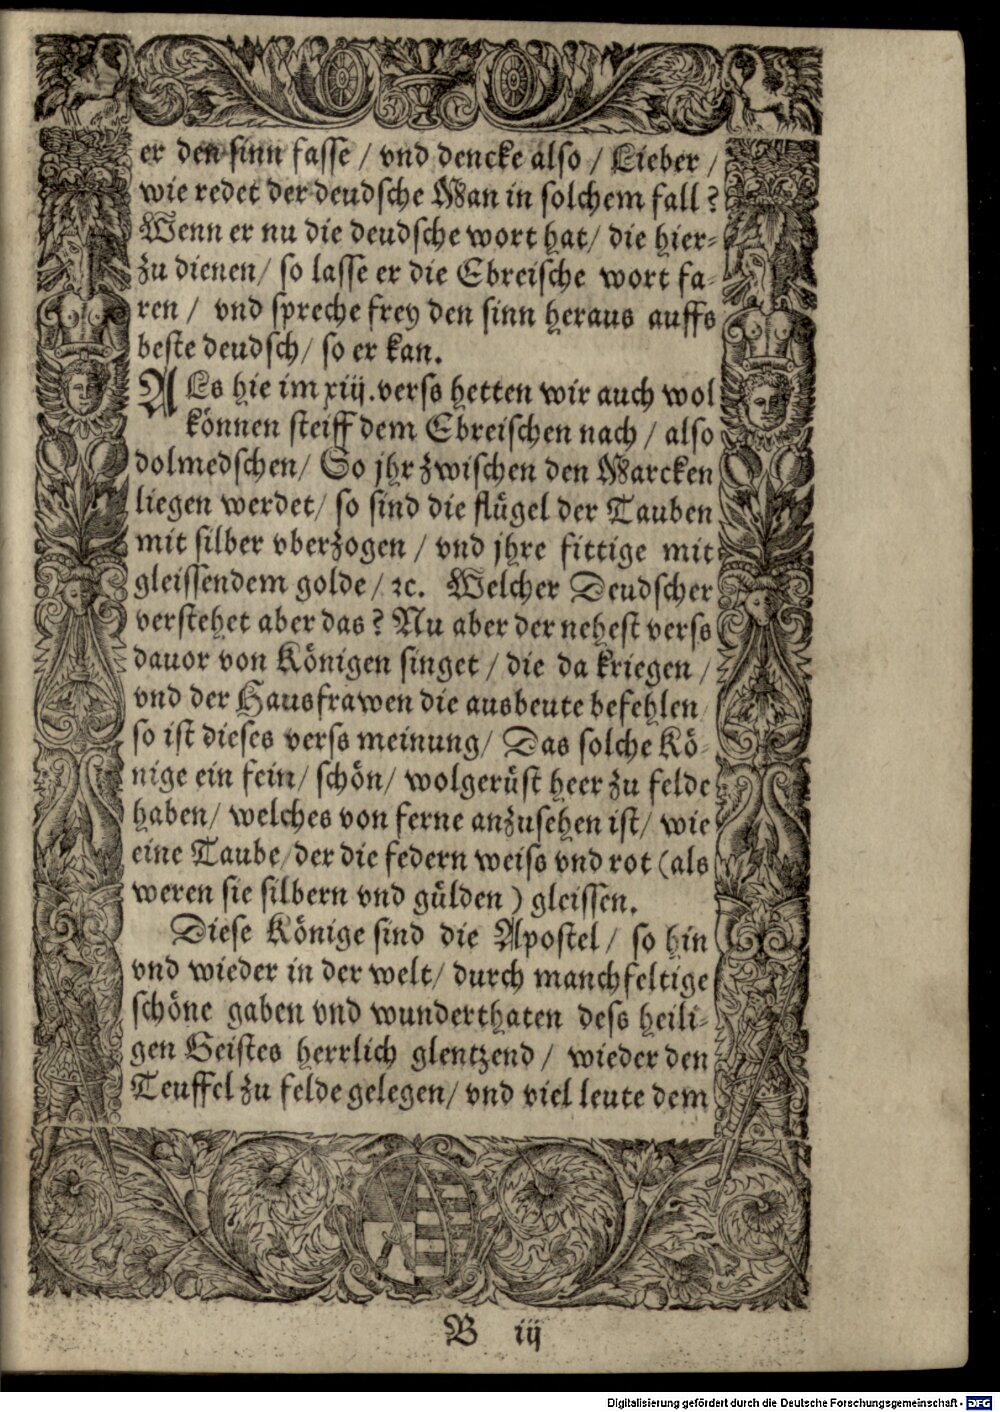 er den sinn fasse / vnd dencke also / Lieber /
wie redet der deudsche Man in solchem fall?
Wenn er nu die deudsche wort hat / die hier-
zu dienen / so lasse er die Ebreische wort fa-
ren / vnd spreche frey den sinn heraus auffs
beste deudsch / so er kan.
ALs hie im xiij. verss hetten wir auch wol
können steiff dem Ebreischen nach / also
dolmedschen / So jhr zwischen den Marcken
liegen werdet / so sind die flügel der Tauben
mit silber vberzogen / vnd jhre fittige mit
gleissendem golde / ꝛc. Welcher Deudscher
verstehet aber das? Nu aber der nehest verss
dauor von Königen singet / die da kriegen /
vnd der Hausfrawen die ausbeute befehlen /
so ist dieses verss meinung / Das solche Kö-
nige ein fein / schön / wolgerüst heer zu felde
haben / welches von ferne anzusehen ist / wie
eine Taube / der die federn weiss vnd rot (als
weren sie silbern vnd gülden) gleissen.
Diese Könige sind die Apostel / so hin
vnd wieder in der welt / durch manchfeltige
schöne gaben vnd wunderthaten dess heili-
gen Geistes herrlich glentzend / wieder den
Teuffel zu felde gelegen / vnd viel leute dem
B iij
Digitalisierung gefördert durch die Deutsche Forschungsgemeinschaft - DFG